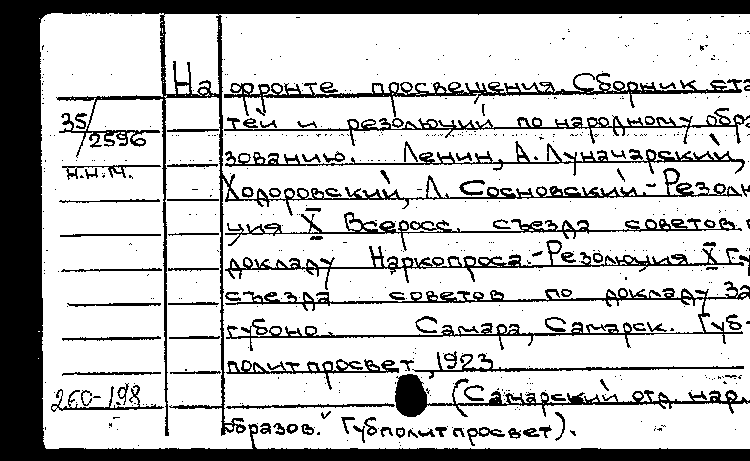 На фронте просвещения. Сборник ста
35/2596
тей и резолюций по народному обра
зованию. Ленин, А. Луначарский,
н.н.м.
Ходоровский, Л. Сосновский.-Резолю
ция X Всеросс. съезда советов
докладу Наркопроса.-Резолюция X Гу
съезда советов по докладу За
губоно. Самара, Самарск. Губ-
политпросвет, 1923.
260-198
(Самарский отд. нар.
образов. Губполитпросвет).